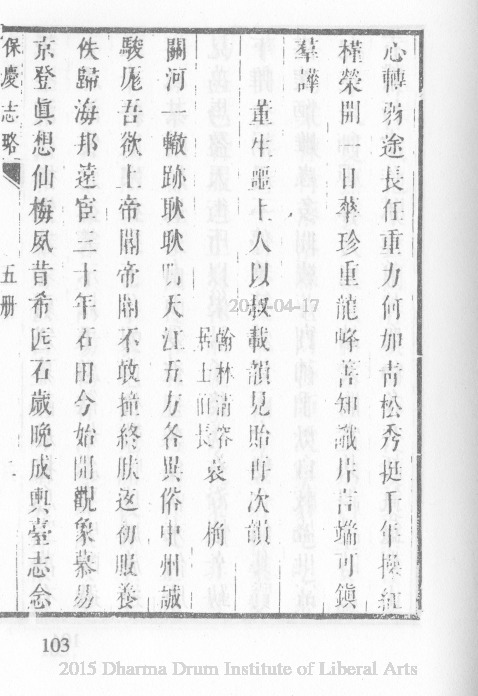 心轉弱途長任重力何加青松秀挺千年操紅
槿榮開一日華珍重龍峰善知識片言端可鎮
羣譁
董生謳上人以叔載韻見貽再次韻
翰林清容居士四長袁桷
關河一轍跡耿耿鳴天江五方各異俗中州誠
駿厖吾欲上帝閽帝閽不敢撞終朕返初服養
佚歸海邦遠宦三十年石田今始開觀象慕易
京登眞想仙梅夙昔希匹石歲晚成輿臺志念
保慶志略
五册
103
2015 Dharma Drum Institute of Liberal Arts